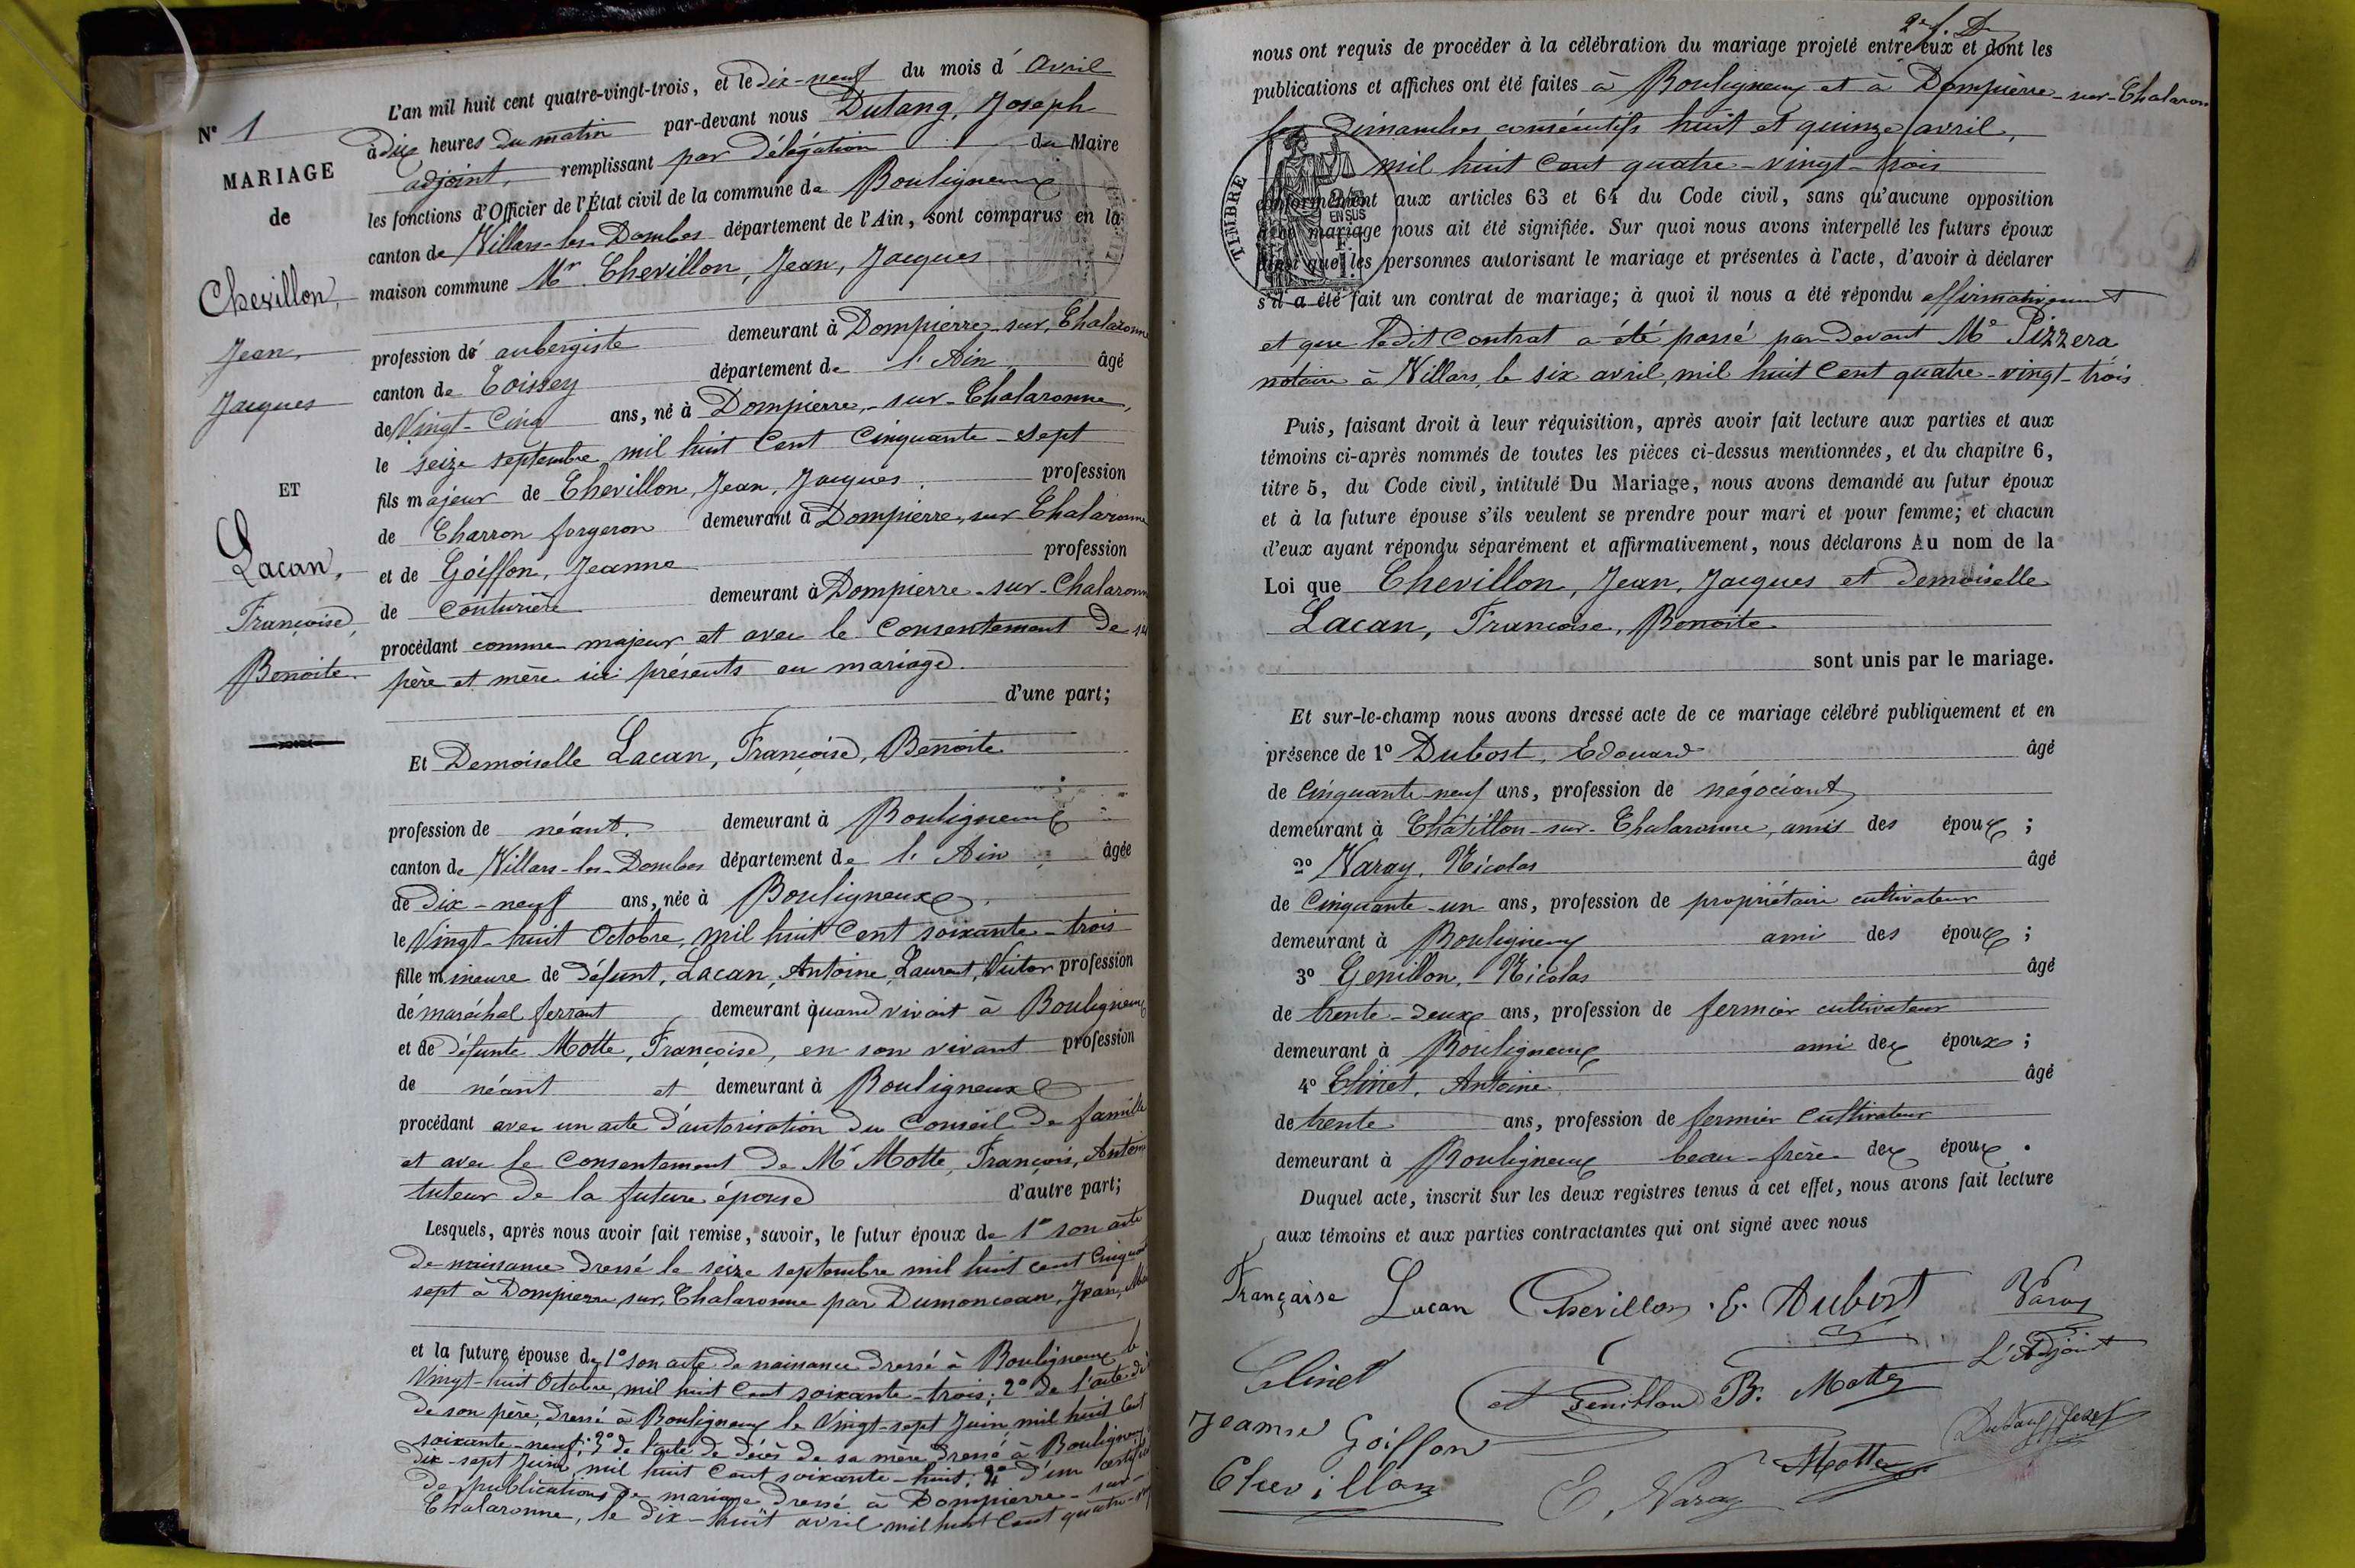 N° 1
MARIAGE
de
Chevillon,
Jean,
Jacques
ET
Lacan,
Françoise,
Benoite.
L'an mil huit cent quatre-vingt-trois, et le Dix-neuf du mois d' avril
à dix heures du matin par-devant nous Dutang, Joseph
adjoint, remplissant par délégation du Maire
les fonctions d'Officier de l'État civil de la commune de Bouligneux
canton de Villars-les-Dombes département de l'Ain, sont comparus en la
maison commune Mr. Chevillon, Jean, Jacques
profession de aubergiste demeurant à Dompierre-sur-Chalaronne
canton de Toissey département de l'Ain âgé
de Vingt-Cinq ans, né à Dompierre-sur-Chalaronne,
le seize septembre mil huit Cent Cinquante-sept
fils majeur de Chevillon, Jean, Jacques, profession
de Charron forgeron demeurant à Dompierre-sur-Chalaronne
et de Goiffon, Jeanne profession
de Couturière demeurant à Dompierre-sur-Chalaronne
procédant comme majeur et avec le Consentement de
père et mère ici présents au mariage.
d'une part;
Et Demoiselle Lacan, Françoise, Benoite
profession de néant, demeurant à Bouligneux
canton de Villars-les-Dombes département de l'Ain âgée
de Dix-neuf ans, née à Bouligneux
le Vingt-huit Octobre, mil huit Cent soixante-trois
fille mineure de défunt, Lacan, Antoine, Laurent, Victor profession
de maréchal ferrant demeurant quand vivait à Bouligneux
et de défunte Motte, Françoise, en son vivant profession
de néant et demeurant à Bouligneux
procédant avec un acte d'autorisation du Conseil de famille
et avec le Consentement de Mr Motte, François, Antoine
tuteur de la future épouse d'autre part;
Lesquels, après nous avoir fait remise, savoir, le futur époux de 1° son acte
de naissance dressé le seize septembre mil huit cent Cinquante
sept à Dompierre sur Chalaronne par Dumonceau, Jean,
et la future épouse de 1° son acte de naissance dressé à Bouligneux le
Vingt-huit Octobre, mil huit Cent soixante-trois; 2° de l'acte de
de son père, dressé à Bouligneux le Vingt-sept Juin mil huit Cent
soixante-neuf; 3° de l'acte de décès de sa mère dressé à Bouligneux
Dix-sept Juin, mil huit Cent soixante-huit; 4° d'un certificat
de publications de mariage dressé à Dompierre-sur-
Chalaronne, le dix-huit avril mil huit Cent quatre-
nous ont requis de procéder à la célébration du mariage projeté entre eux et dont les
publications et affiches ont été faites à Bouligneux et à Dompierre-sur-Chalaronne
les Dimanches consécutifs huit et quinze avril,
mil huit Cent quatre-vingt-trois
TIMBRE
2/10 EN SUS
conformément aux articles 63 et 64 du Code civil, sans qu'aucune opposition
à ce mariage nous ait été signifiée. Sur quoi nous avons interpellé les futurs époux
ainsi que les personnes autorisant le mariage et présentes à l'acte, d'avoir à déclarer
s'il a été fait un contrat de mariage; à quoi il nous a été répondu affirmativement
et que ledit Contrat a été passé par-devant Me Pizzera
notaire à Villars, le six avril, mil huit Cent quatre-vingt-trois
Puis, faisant droit à leur réquisition, après avoir fait lecture aux parties et aux
témoins ci-après nommés de toutes les pièces ci-dessus mentionnées, et du chapitre 6,
titre 5, du Code civil, intitulé Du Mariage, nous avons demandé au futur époux
et à la future épouse s'ils veulent se prendre pour mari et pour femme; et chacun
d'eux ayant répondu séparément et affirmativement, nous déclarons Au nom de la
Loi que Chevillon, Jean, Jacques et demoiselle
Lacan, Francoise, Benoite
sont unis par le mariage.
Et sur-le-champ nous avons dressé acte de ce mariage célébré publiquement et en
présence de 1° Dubost, Edouard âgé
de Cinquante-neuf ans, profession de négociant
demeurant à Châtillon-sur-Chalaronne, amis des époux ;
2° Varay, Nicolas âgé
de Cinquante-un ans, profession de propriétaire cultivateur
demeurant à Bouligneux ami des époux ;
3° Genillon, Nicolas âgé
de trente-deux ans, profession de fermier cultivateur
demeurant à Bouligneux ami des époux ;
4° Clinet, Antoine âgé
de trente ans, profession de fermier Cultivateur
demeurant à Bouligneux beau-frère des époux .
Duquel acte, inscrit sur les deux registres tenus à cet effet, nous avons fait lecture
aux témoins et aux parties contractantes qui ont signé avec nous
Françaire Lacan Chevillon E. Dubost Varay
Clinet Genillon B. Motte L'Adjoint
Jeanne Goiffon
Chevillon E. Varay Motte